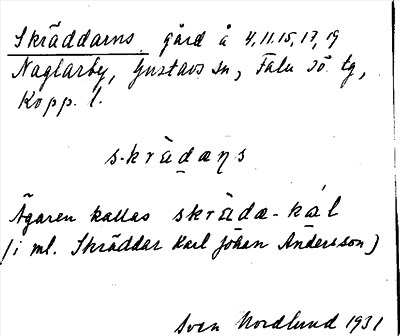 Skräddarns gård å 4, 11. 15, 17, 19
Naglarby, Gustavs sn, Falu sö. tg,
Kopp. l.
skrädaṇs
Ägaren kallas skräda-kál
(i ml. Skräddar Karl Johan Andersson)
Sven Nordlund 1931